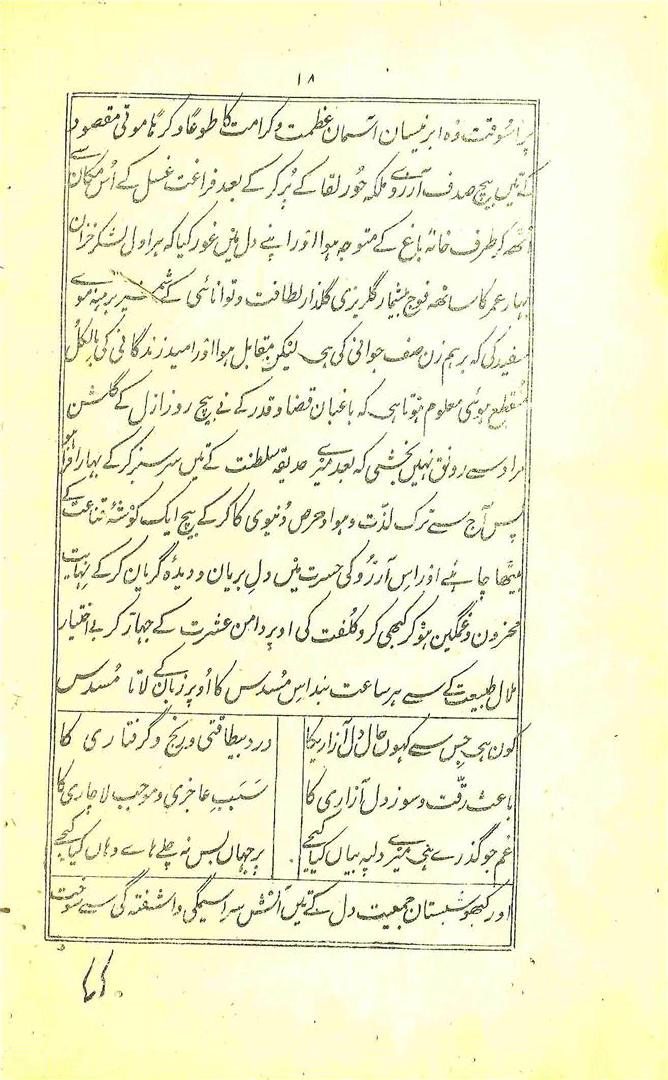 ۱۸
پر اسوقت وہ ابر نیسان آسمان عظمت و کرامت کا طوعاً و کرہاً موتی مقصود
کے تئیں بیچ صدف آرزوے ملکہ حور لقا کے پُر کر کے بعد فراغت غسل کے اُس مکان سے
اُٹھ کر طرف خانہ باغ کے متوجہ ہوا اور اپنے دل میں غور کیا کہ ہراول لشکر خزان
بہار عمر کا ساتھ فوج بیشمار گلریزی گلذار لطافت و توانائی کے شمشیر برہنہ موے
سفید کی کہ برہم زن صف جوانی کی ہی لیکن مقابل ہوا اور امید زندگانی کی بالکل
منقطع ہوئی معلوم ہوتا ہی کہ باغبان قضا و قدر کے نے بیچ روز ازل کے گلشن
مراد سے رونق نہیں بخشی کہ بعد میرے حدیقہ سلطنت کے تئیں سرسبز کر کے بہار افزا ہو
پس آج سے ترک لذّت و ہوا و حرص دُنیوی کا کر کے بیچ ایک گوشۂ قناعت کے
بیٹھا چاہئے اور اس آرزو کی حسرت میں دل بریان و دیدۂ گریان کر کے نہایت
محزون و غمگین ہو کر کبھی گرد کلفت کی اوپر دامن عشرت کے جھاڑ کر بے اختیار
ملال طبیعت کے سے ہر ساعت بند اس مُسدس کا اُوپر زبان کے لاتا مُسدس
کون ہی جس سے کہوں حال دل آزاریکا
درد بیطاقتی و رنج و گرفتاری کا
باعث رقّت و سوز دل آزاری کا
سَبَبِ عاجزی و موجب لاچاری کا
غم جو گذرے ہی میرے دل پہ بیان کیا کیجے
پر جہاں بس نہ چلے ہاے وہاں کیا کیجے
اور کبھو شبستان جمعیت دل کے تئیں آتش سراسیمگی و اشفتہ گی سے سوخت